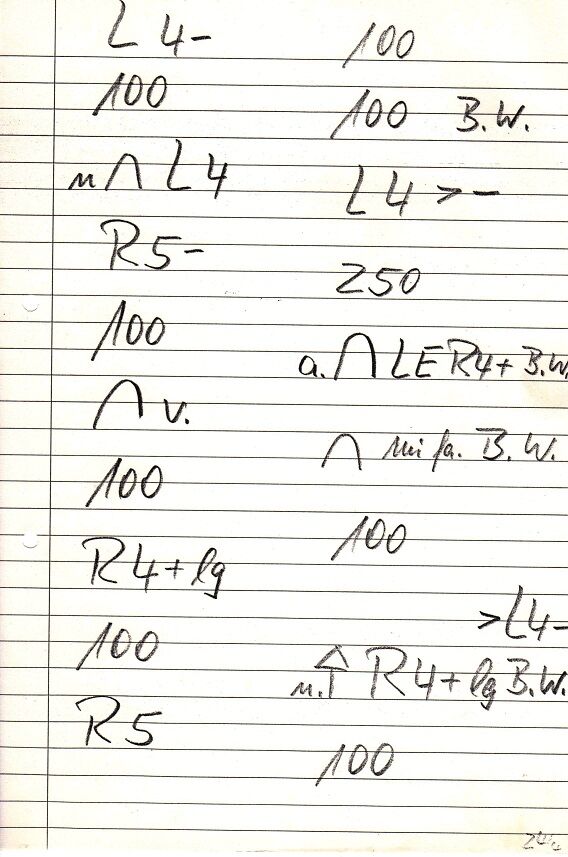 L 4-
100
n ∩ L 4
R5-
100
∩ v.
100
R4+ lg
100
R5
100
100 B.W.
L 4 > -
250
a. ∩ LE R4+ B.W.
∩ B. W.
100
>L4-
n. R4+ lg B.W.
100